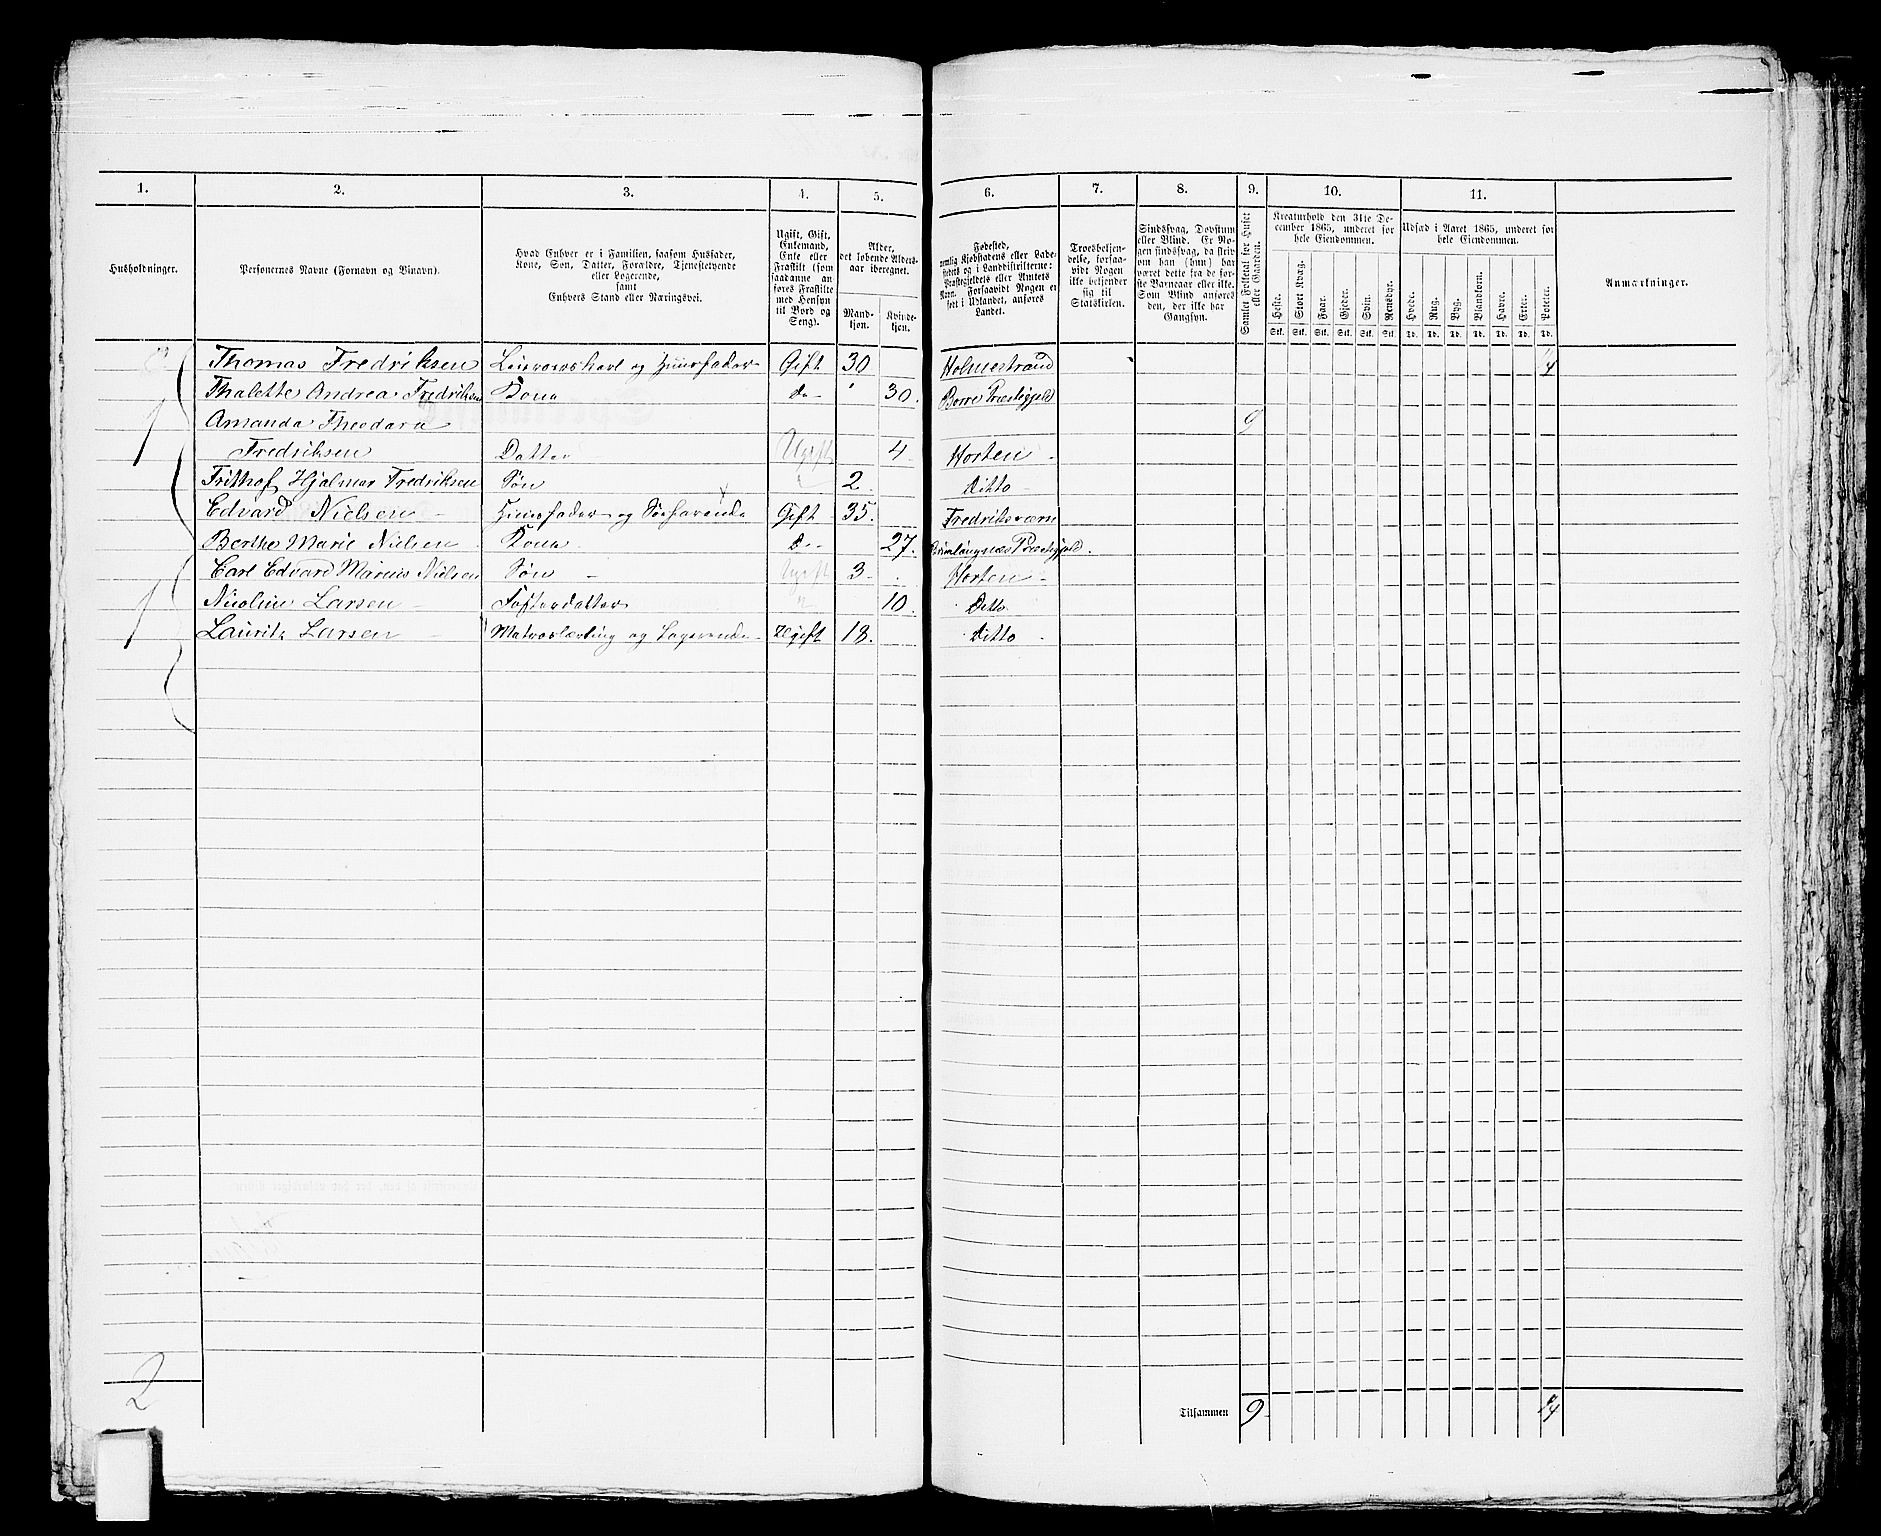 1. 2. 3. 4. 5. 6. 7. 8. 9. 10. 11.
Husholdninger.
Personernes Navne (Fornavn og Binavn).
Hvad Enhver er i Familien, saasom Husfader,
Kone, Søn, Datter, Forældre, Tjenestetyende
eller Logerende,
samt
Enhvers Stand eller Næringsvei.
Ugift, Gift,
Enkemand,
Enke eller
Fraskilt (som
saadanne an-
føres Fraskilte
med Hensyn
til Bord og
Seng).
Alder,
det løbende Alders-
aar iberegnet.
Mand-
kjøn.
Kvinde-
kjøn.
Fødested,
nemlig Kjøbstadens eller Lade-
stedets og i Landdistrikterne:
Præstegjeldets eller Amtets
Navn. Forsaavidt Nogen er
født i Udlandet, anføres
Landet.
Troesbekjen-
delse, forsaa-
vidt Nogen
ikke bekjender
sig til
Statskirken.
Sindssvag, Døvstum
eller Blind. Er No-
gen sindssvag, da skriv
om han (hun) har
været dette fra de før-
ste Barneaar eller ikke.
Som Blind anføres
den, der ikke har
Gangsyn.
Samlet Folketal for Huset
eller Gaarden.
Kreaturhold den 31te De-
cember 1865, underet for
hele Eiendommen.
Heste. Stort Kvæg. Faar. Gjeder. Svin. Rensdyr.
Stk. Stk. Stk. Stk. Stk. Stk.
Udsæd i Aaret 1865, underet for
hele Eiendommen.
Hvede. Rug. Byg. Blandkorn. Havre. Erter. Poteter.
Td. Td. Td. Td. Td. Td. Td.
Anmærkninger.
Thomas Fredriksen Gift 30 Holmestrand
Thalette Andrea Fredriksen Kone do 30. Borre Præstegjeld
Amanda Theodora 9
Fredriksen Datter Ugift 4 Horten
Frithof Hjalmar Fredriksen Søn 2 Ditto
Edvard Nielsen Huusfader og Søefarende Gift 35. Fredriksværn
Berthe Marie Nielsen Kone Do 27. Præstegjeld.
Carl Edvard Marius Nielsen Søn Ugift 3 Horten
Nicoline Larsen Fosterdatter " 10. Ditto
Lauritz Larsen og Logerende Ugift 18. Ditto
2
Tilsammen 9